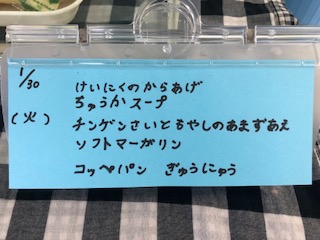 1/30
(火)
けいにくのからあげ
ちゅうかスープ
チンゲンさいともやしのあまずあえ
ソフトマーガリン
コッペパン ぎゅうにゅう